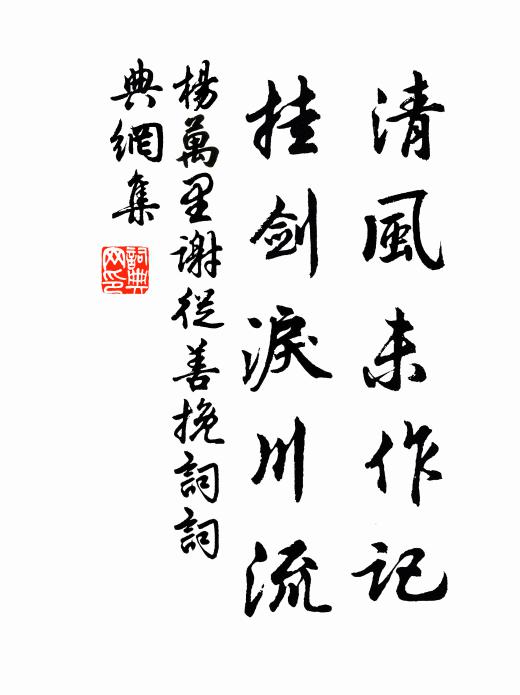 清風未作記
挂劍淚川流
楊萬里謝從善挽詞詞
典網集
詞典網印